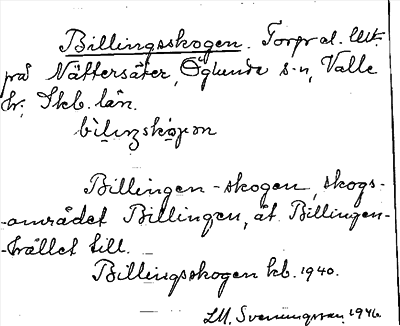 Billingsskogen. Torpral. utt.
på Nättersäter, Öglunda s-n, Valle
hr, Skb. län.
Billingen-skogen, skogs-
-området Billingen, åt Billingen-
-hållet till.
Billingsskogen kb. 1940.
LM. Svenungsson 1946.